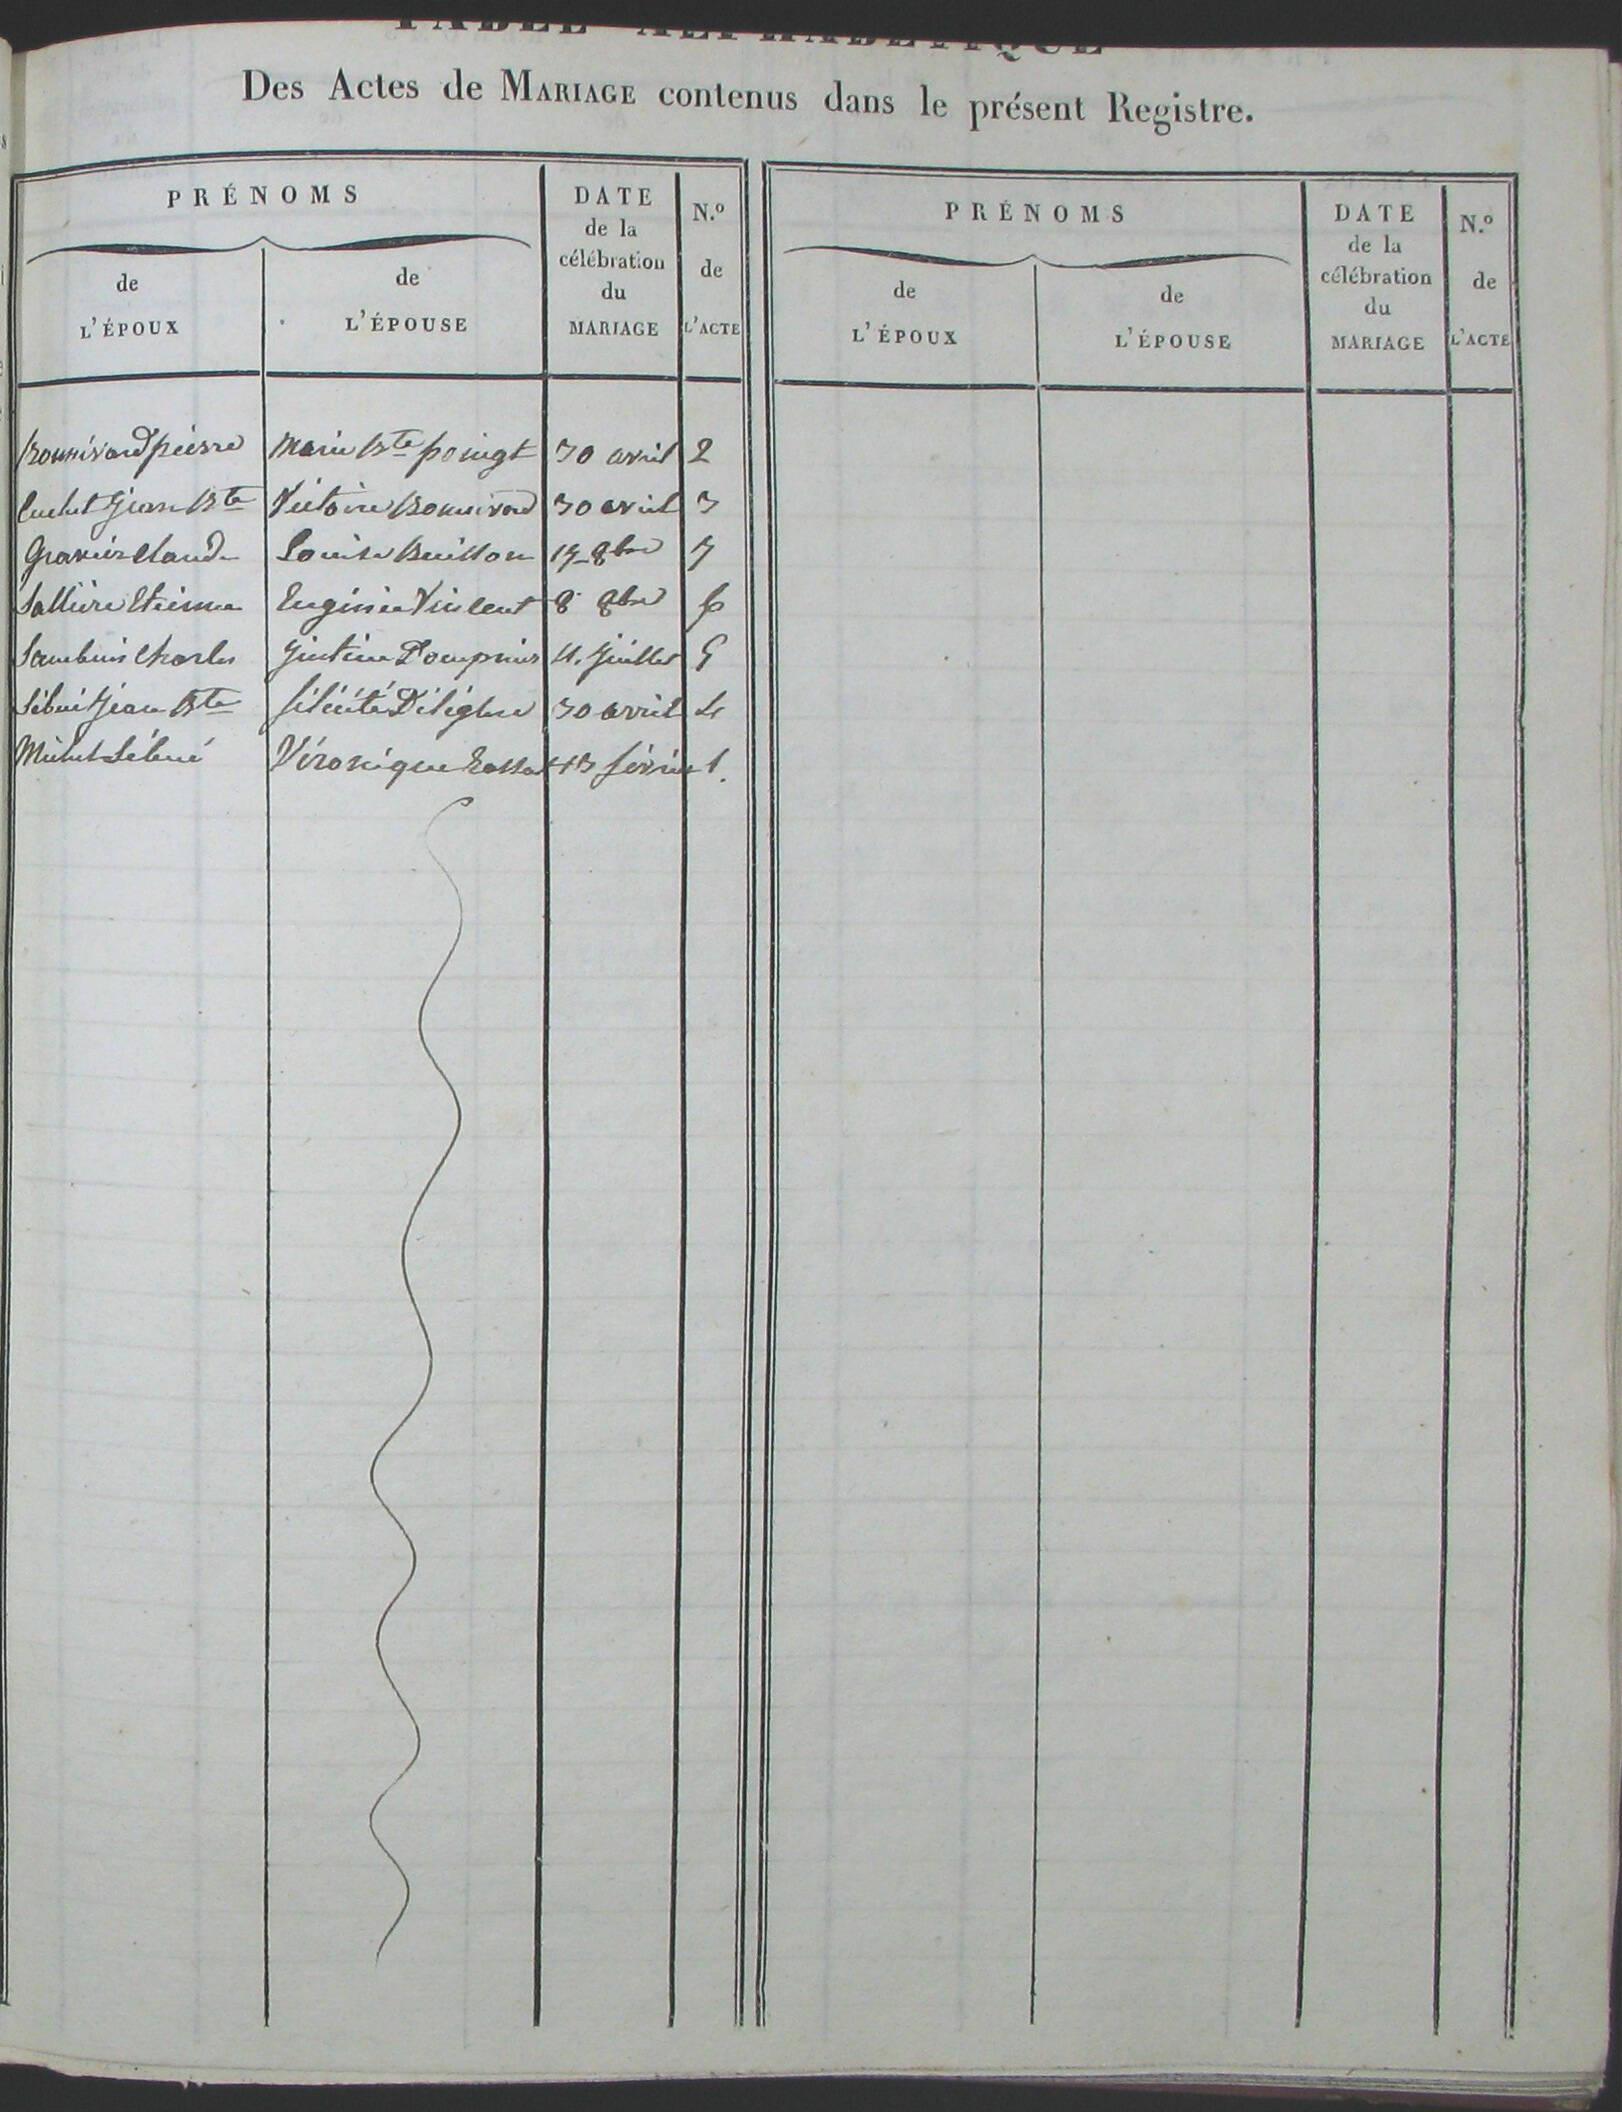 TABLE ALPHABÉTIQUE
Des Actes de MARIAGE contenus dans le présent Registre.
PRÉNOMS
de
L'ÉPOUX
de
L'ÉPOUSE
DATE
de la
célébration
du
MARIAGE
N.º
de
L'ACTE
PRÉNOMS
de
L'ÉPOUX
de
L'ÉPOUSE
DATE
de la
célébration
du
MARIAGE
N.º
de
L'ACTE
Bonnivard pierre Marie Bte poingt 30 avril 2
Cuchet Jean Bte Victoire Bonnivard 30 avril 3
Gravier Claude Louise Buisson 8bre 7
Etienne Eugénie Vincent 8 8bre 6
Charles 11. Juillet 5
Jean Bte félicité Déléglise 30 avril 4
Michel Véronique février 1.